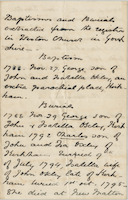 Baptisms and Burials
extracted from the register
in Norton Church in York
shire.
Baptism
1782. Nov 27. George son of
John and Isabella Oxley, an
extra parochial place, Kirk
ham.
Burial
1782 Nov 29 George son of
John & Isabella Oxley, Kirk
ham 1792 Charles son of
John and Isa Oxley of
Kirkham buried
1795 Isabella wife
of John Oxley, late of Kirk
ham buried 1st Oct. 1795.
She died at New Malton